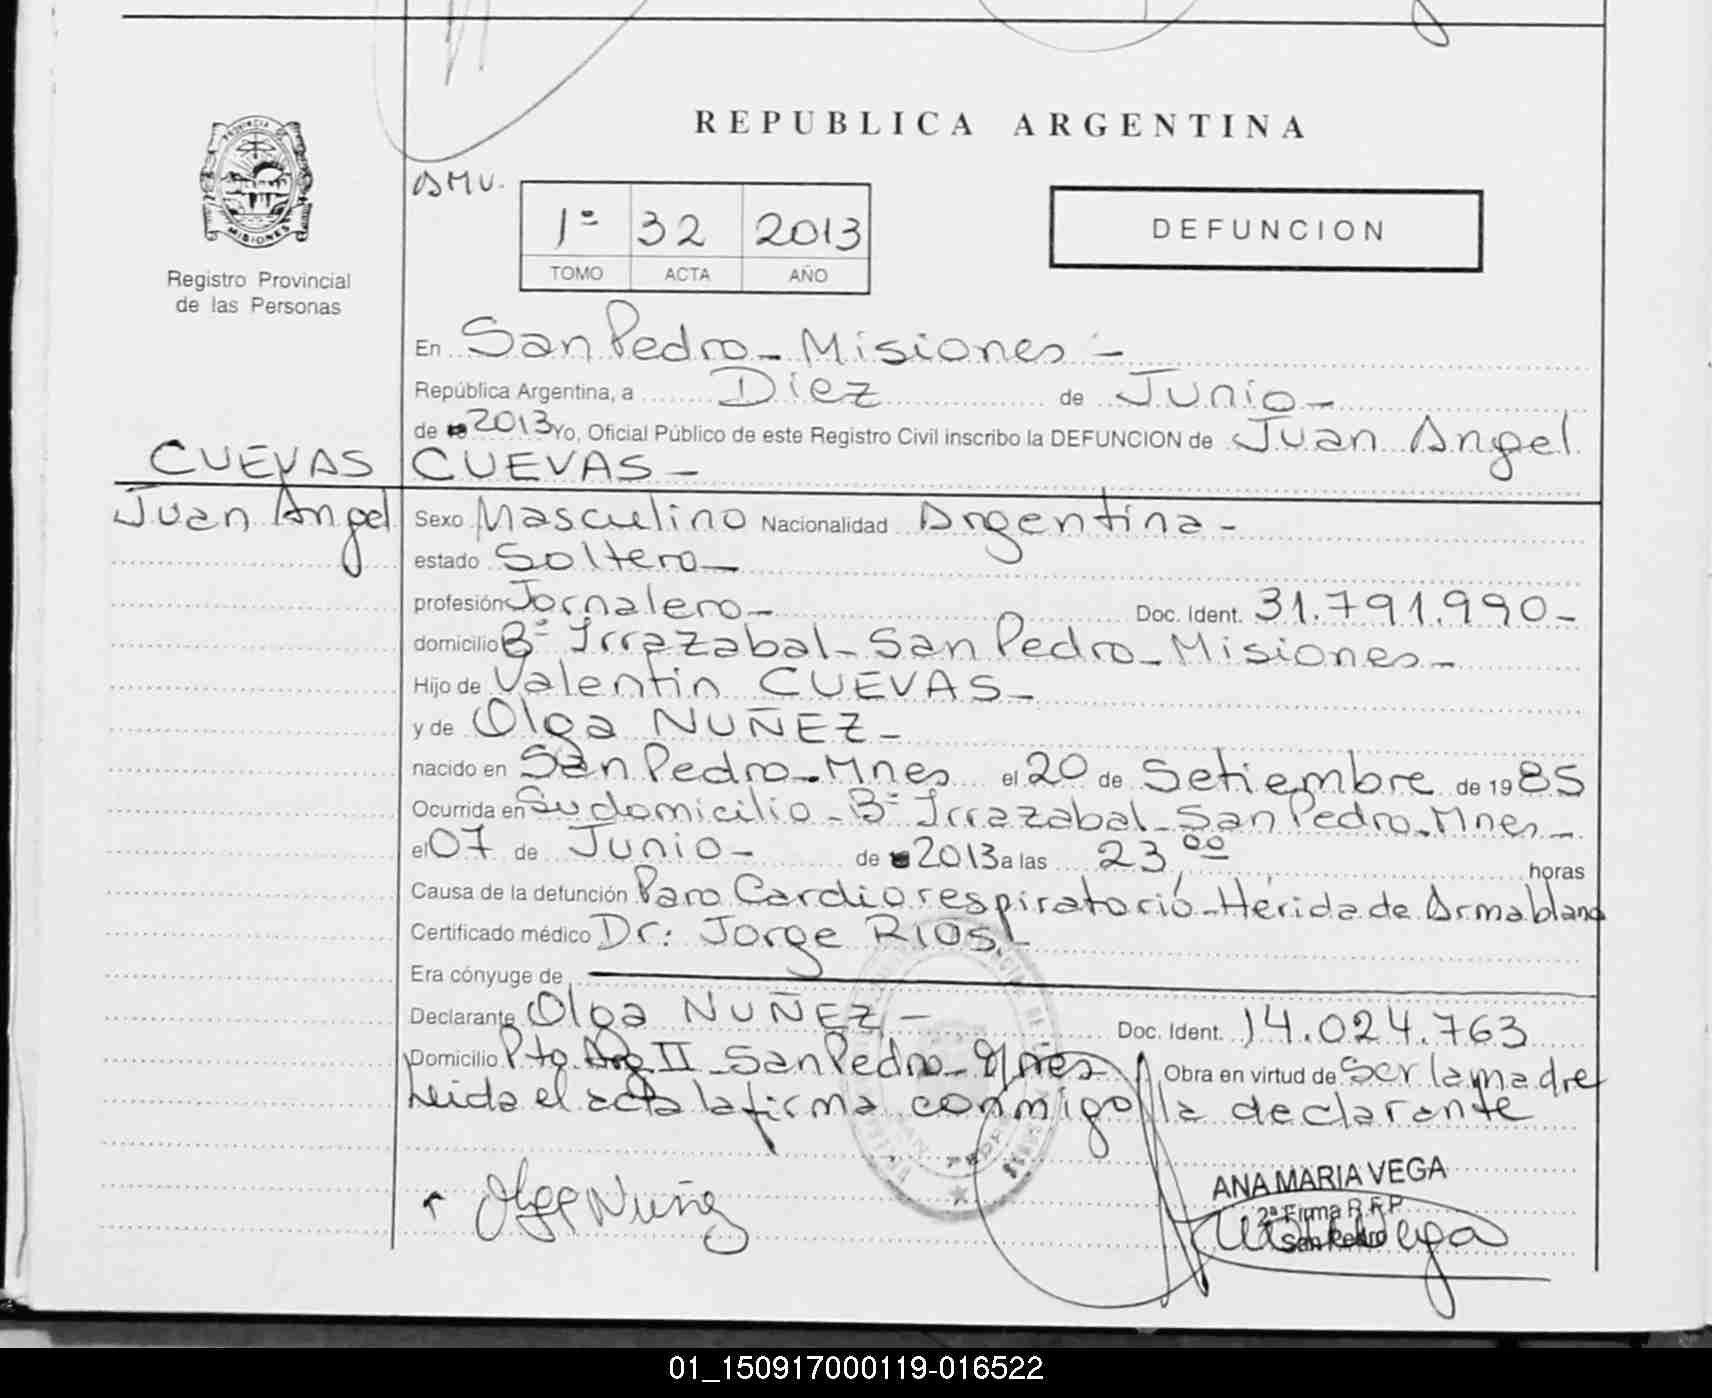 REPUBLICA ARGENTINA
PROVINCIA DE
MISIONES
Registro Provincial
de las Personas
AMV.
1º 32 2013
TOMO ACTA AÑO
DEFUNCION
En San Pedro - Misiones -
República Argentina, a Diez de Junio -
de 2013 Yo, Oficial Público de este Registro Civil inscribo la DEFUNCION de Juan Angel
CUEVAS -
CUEVAS
Juan Angel
Sexo Masculino Nacionalidad Argentina -
estado Soltero -
profesión Jornalero - Doc. Ident. 31.791.990 -
domicilio Bº Irrazabal - San Pedro - Misiones -
Hijo de Valentin CUEVAS -
y de Olga NUÑEZ -
nacido en San Pedro - Mnes el 20 de Setiembre de 1985
Ocurrida en Su domicilio - Bº Irrazabal - San Pedro - Mnes -
el 07 de Junio - de 2013 a las 23,00 horas
Causa de la defunción Paro Cardio respiratorió - Herida de Arma blanca
Certificado médico Dr: Jorge RIOS -
Era cónyuge de
Declarante Olga NUÑEZ - Doc. Ident. 14.024.763
Domicilio Pto Arg II - San Pedro - Mnes Obra en virtud de Ser la madre
Leida el acta la firma conmigo la declarante
Olga Nuñez
ANA MARIA VEGA
2ª Firma R.P.P
San Pedro
01_150917000119-016522